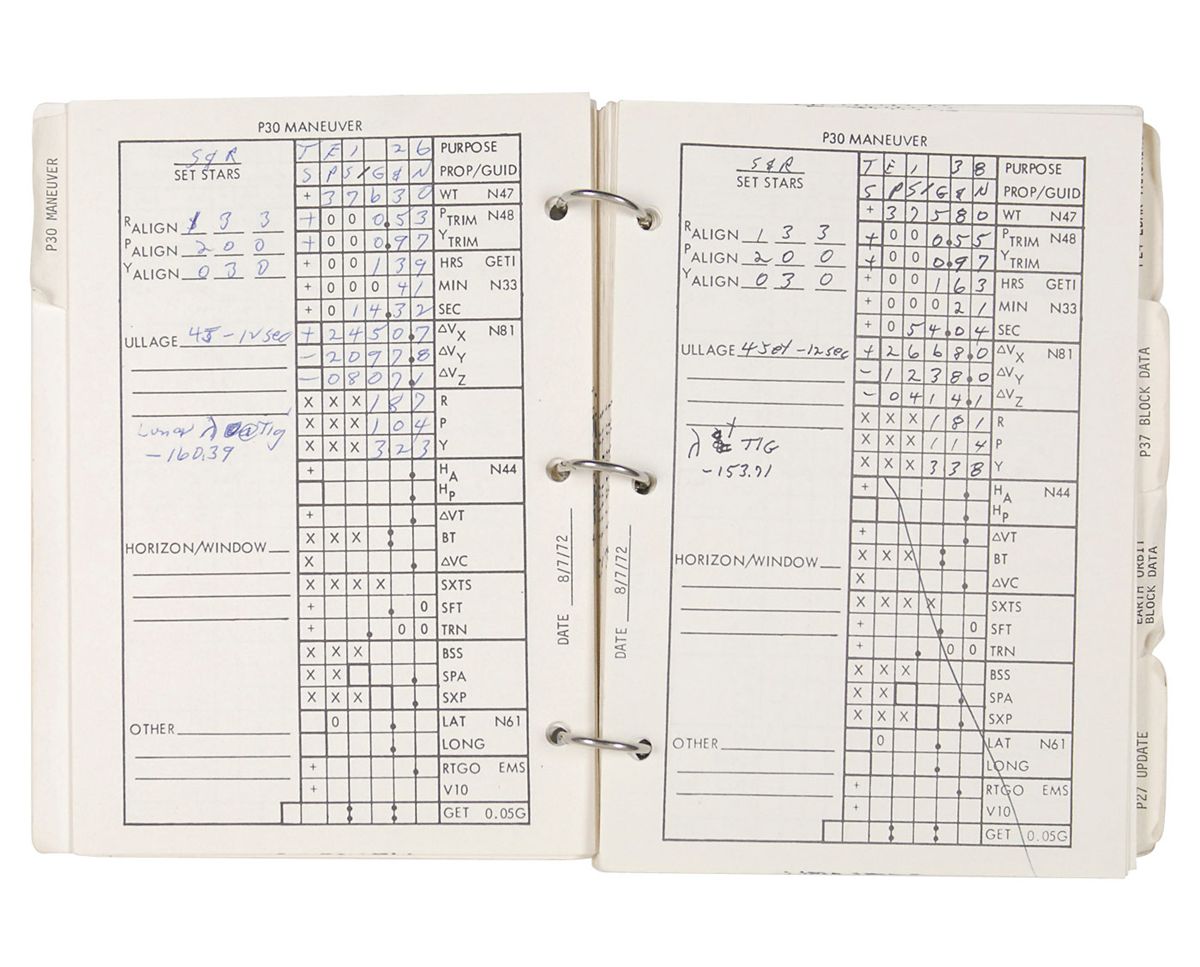 P30 MANEUVER
P30 MANEUVER
S & R
SET STARS
T E I 26 PURPOSE
S P S / G & N PROP/GUID
+ 3 7 6 3 0 WT N47
R ALIGN 1 3 3
P ALIGN 2 0 0
Y ALIGN 0 3 0
+ 0 0 0.5 3 P TRIM N48
+ 0 0 0.9 7 Y TRIM
+ 0 0 1 3 9 HRS GETI
+ 0 0 0 4 1 MIN N33
+ 0 1 4.3 2 SEC
ULLAGE 4J - 12 sec
+ 2 4 5 0.7 ΔVX N81
- 2 0 9 7.8 ΔVY
- 0 8 0 7.1 ΔVZ
X X X 1 8 7 R
X X X 1 0 4 P
X X X 3 2 3 Y
Lunar λ @ TIG
-160.39
+ HA N44
HP
+ ΔVT
X X X BT
X ΔVC
HORIZON/WINDOW
X X X X SXTS
+ 0 SFT
+ 0 0 TRN
X X X BSS
X X SPA
X X X SXP
OTHER
0 LAT N61
LONG
+ RTGO EMS
+ V10
GET 0.05G
DATE 8/7/72
P30 MANEUVER
S & R
SET STARS
T E I 38 PURPOSE
S P S / G & N PROP/GUID
+ 3 7 5 8 0 WT N47
R ALIGN 1 3 3
P ALIGN 2 0 0
Y ALIGN 0 3 0
+ 0 0 0.5 5 P TRIM N48
+ 0 0 0.9 7 Y TRIM
+ 0 0 1 6 3 HRS GETI
+ 0 0 0 2 1 MIN N33
+ 0 5 4.0 4 SEC
ULLAGE 4 jet - 12 sec
+ 2 6 6 8.0 ΔVX N81
- 1 2 3 8.0 ΔVY
- 0 4 1 4.1 ΔVZ
X X X 1 8 1 R
X X X 1 1 4 P
X X X 3 3 8 Y
λ TIG
-153.71
+ HA N44
HP
+ ΔVT
X X X BT
X ΔVC
HORIZON/WINDOW
X X X X SXTS
+ 0 SFT
+ 0 0 TRN
X X X BSS
X X SPA
X X X SXP
OTHER
0 LAT N61
LONG
+ RTGO EMS
+ V10
GET 0.05G
DATE 8/7/72
P37 BLOCK DATA
EARTH ORBIT
BLOCK DATA
P27 UPDATE